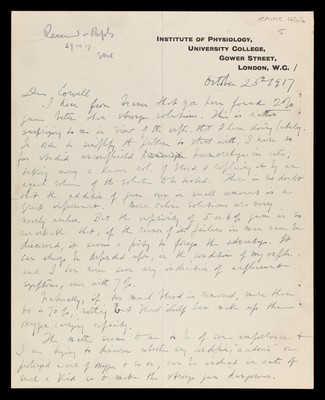 Received & Reply
29.10.17
INSTITUTE OF PHYSIOLOGY,
UNIVERSITY COLLEGE,
GOWER STREET,
LONDON, W.C. 1
October 25th 1917
Dear Cowell
I hear from that you have found 2%
gum better than stronger solutions. This is rather
surprising to me in view of the expts. that I have been doing lately.
In order to simplify the problem to start with, I have so
far studied uncomplicated haemorrhage in cats,
taking away a known vol. of blood & replacing it by an
equal volume of the solution to be tested. There is no doubt
that the addition of gum even in small amount is a
great improvement. Mere saline solutions are very
nearly useless. But the superiority of 5 or 6% gum is so
remarkable that, if the reason of the failures in man can be
discovered, it seems a pity to forego the advantage. It
can always be depended upon, in the conditions of my expts.,
and I have never seen any indication of unpleasant
symptoms, even with 7%.
Naturally, if too much blood is removed, more than
60 to 70%, nothing but blood itself can make up the
oxygen carrying capacity.
The matter seems to me to be of some importance &
I am trying to discover whether any condition, acidosis or
prolonged want of oxygen & so on, can be induced in cats of
such a kind as to make the stronger gum dangerous.